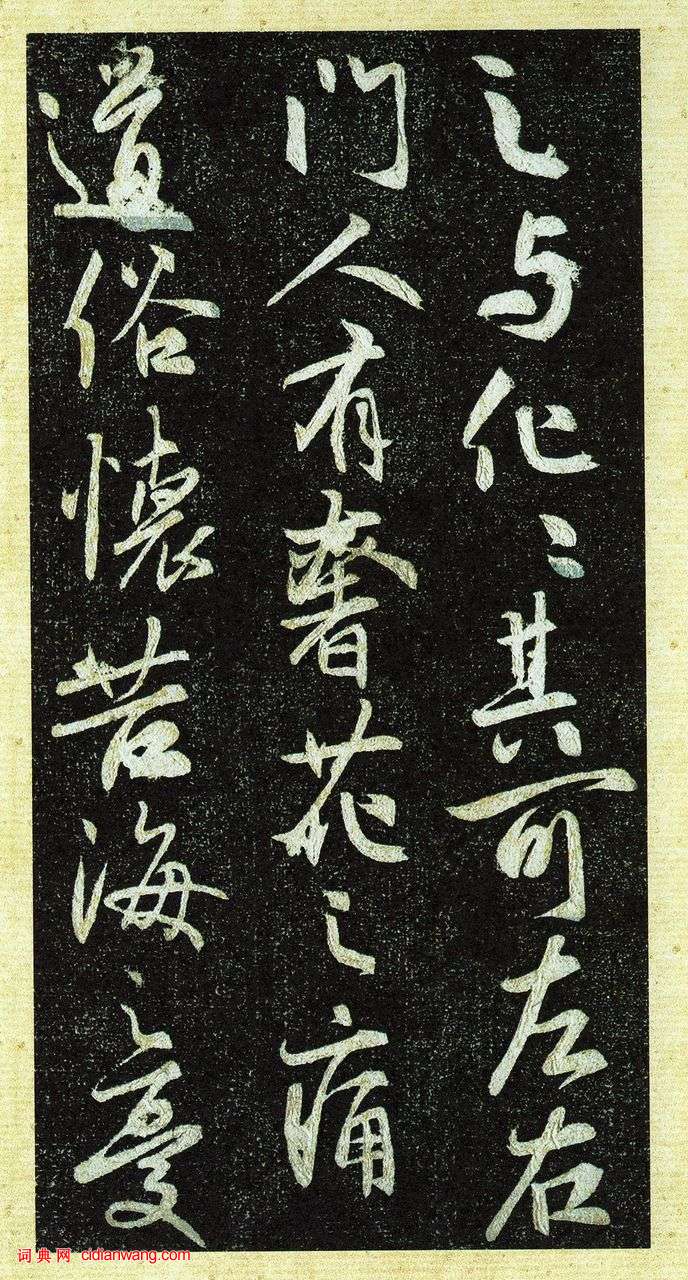 之与化〻其可左右
門人有奢花之痛
道俗懷苦海之憂
词典网 cidianwang.com